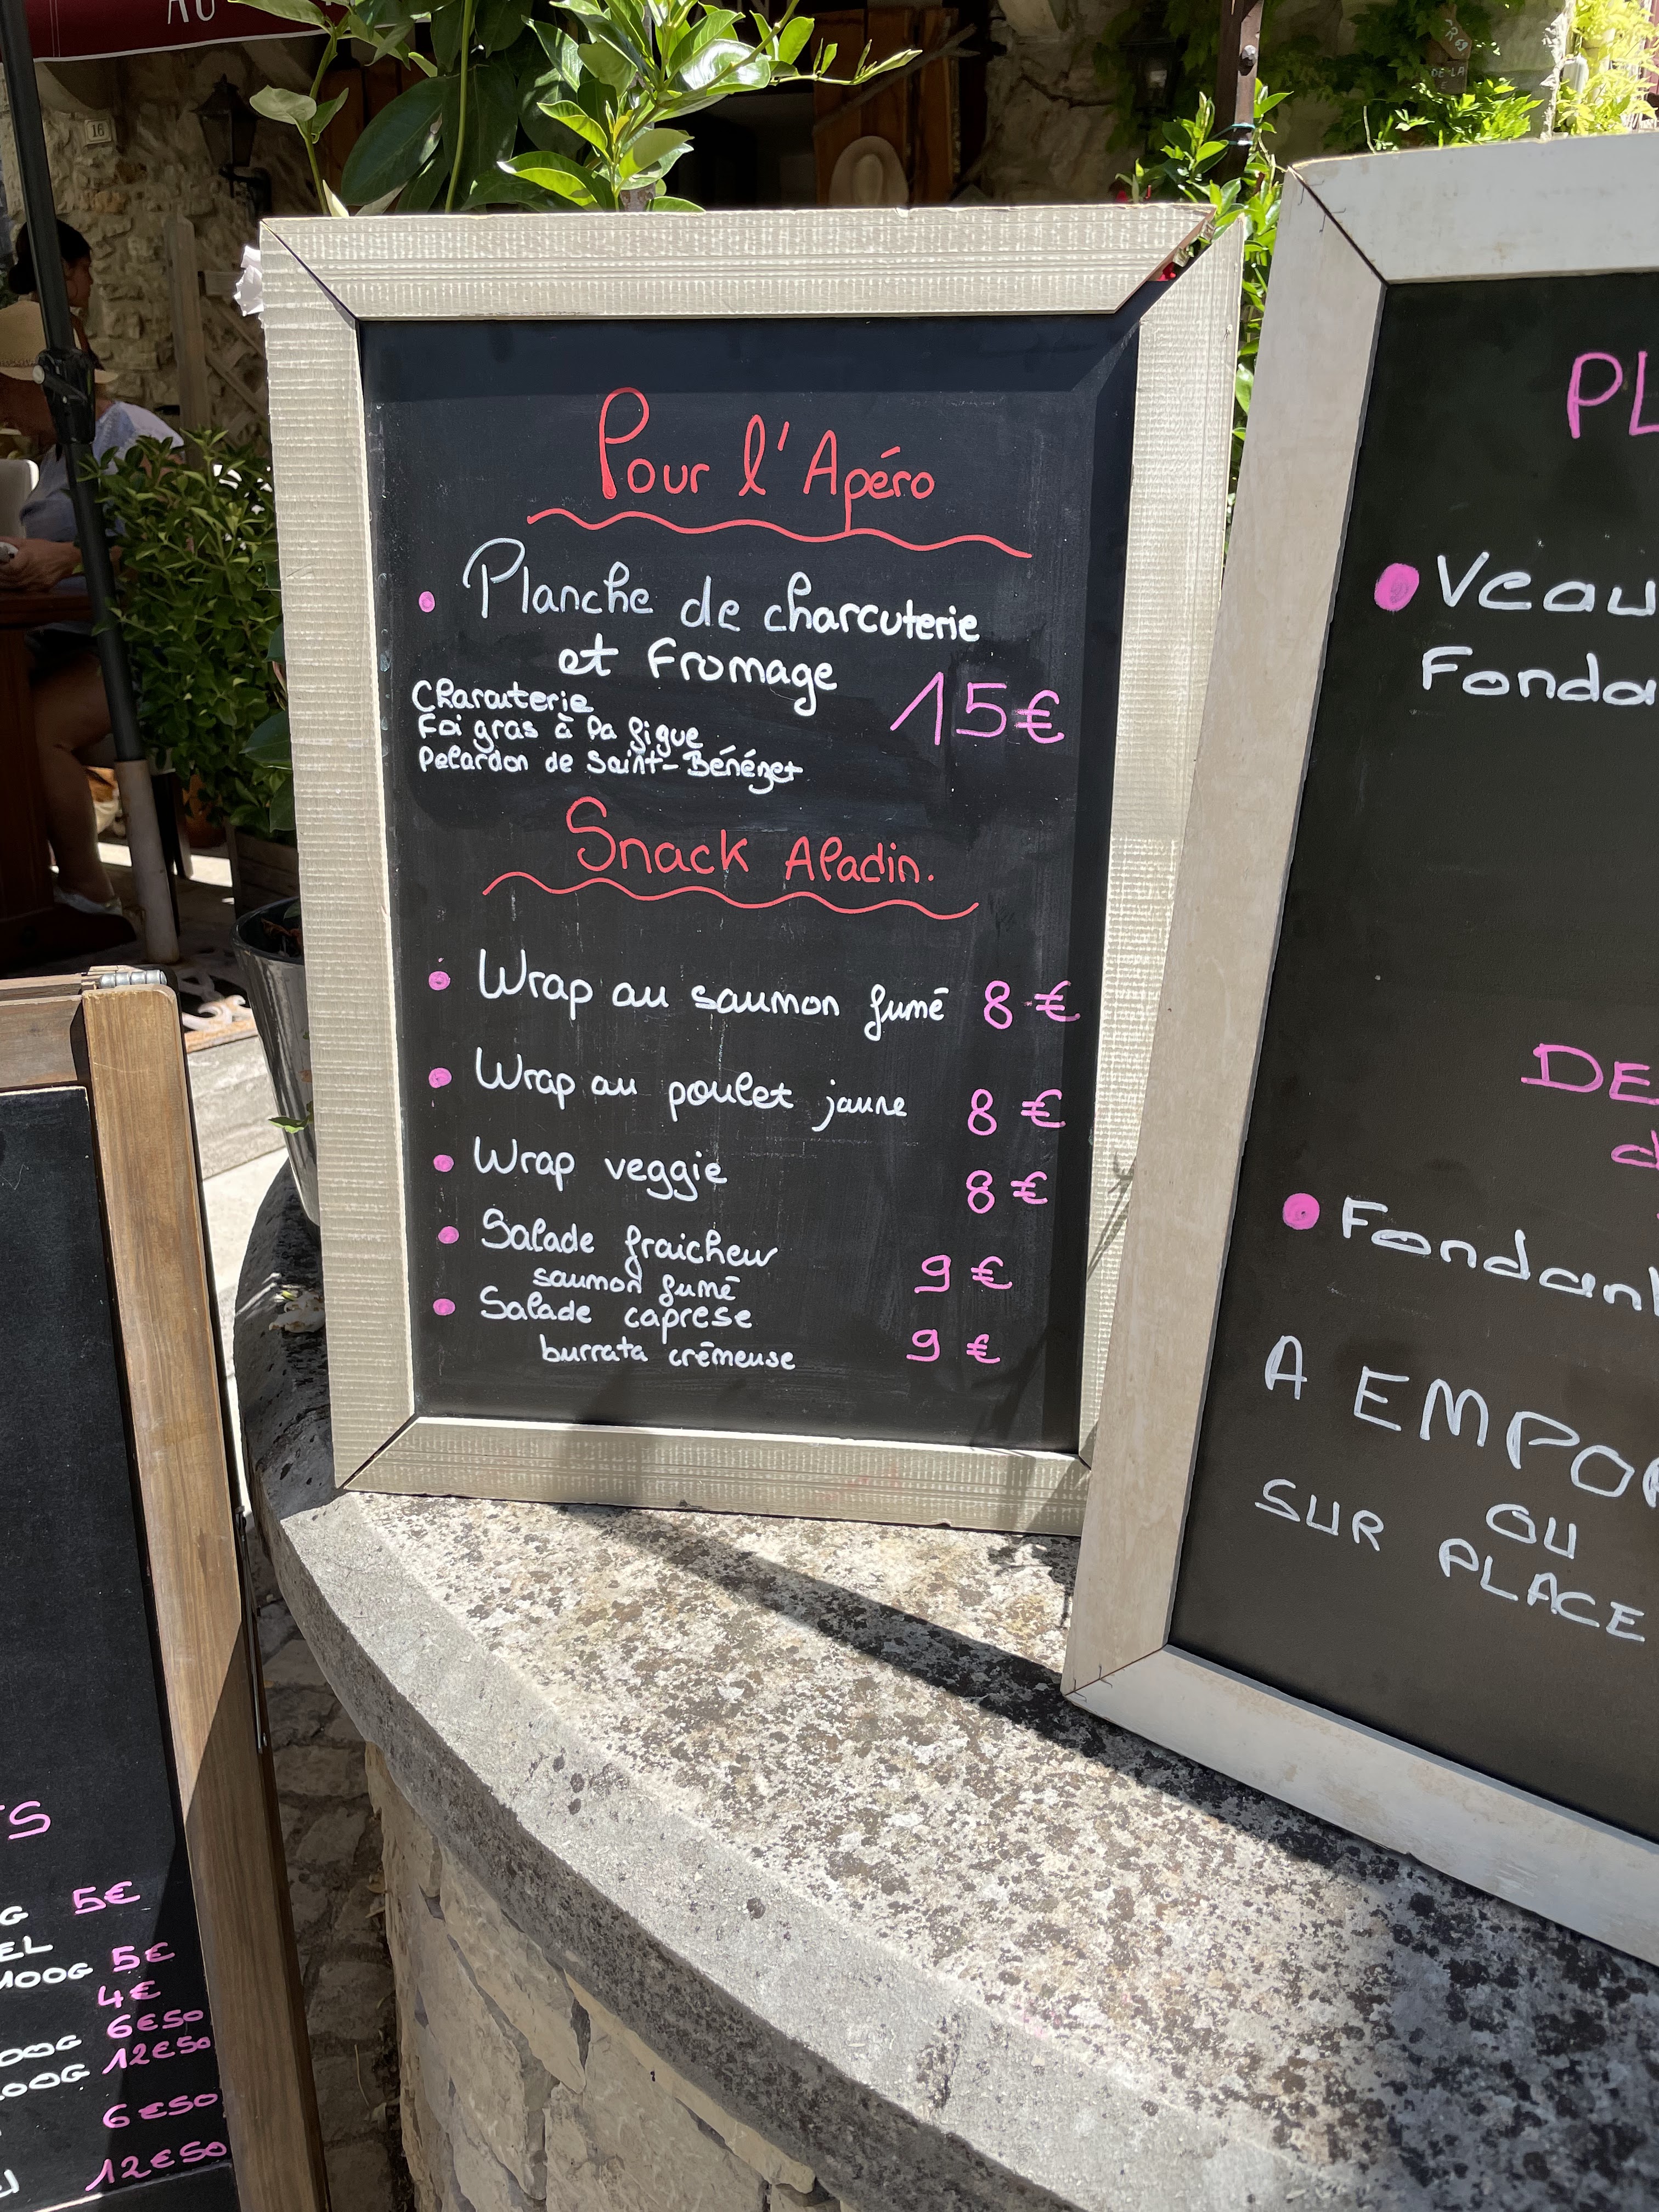 AU
16
Pour l'Apéro
Planche de charcuterie
et Fromage
15€
Charcuterie
Foi gras à la figue
Pelardon de Saint-Bénézet
Snack Aladin.
Wrap au saumon fumé 8 €
Wrap au poulet jaune 8 €
Wrap veggie 8 €
Salade fraicheur 9 €
saumon fumé
Salade caprese
burrata crémeuse 9 €
PL
Veau
Fonda
DE
d
Fondant
A EMPOR
OU
SUR PLACE
TS
G 5€
EL
100G 5€
4€
6€50
00G 12€50
00G
6€50
12€50
DE LA